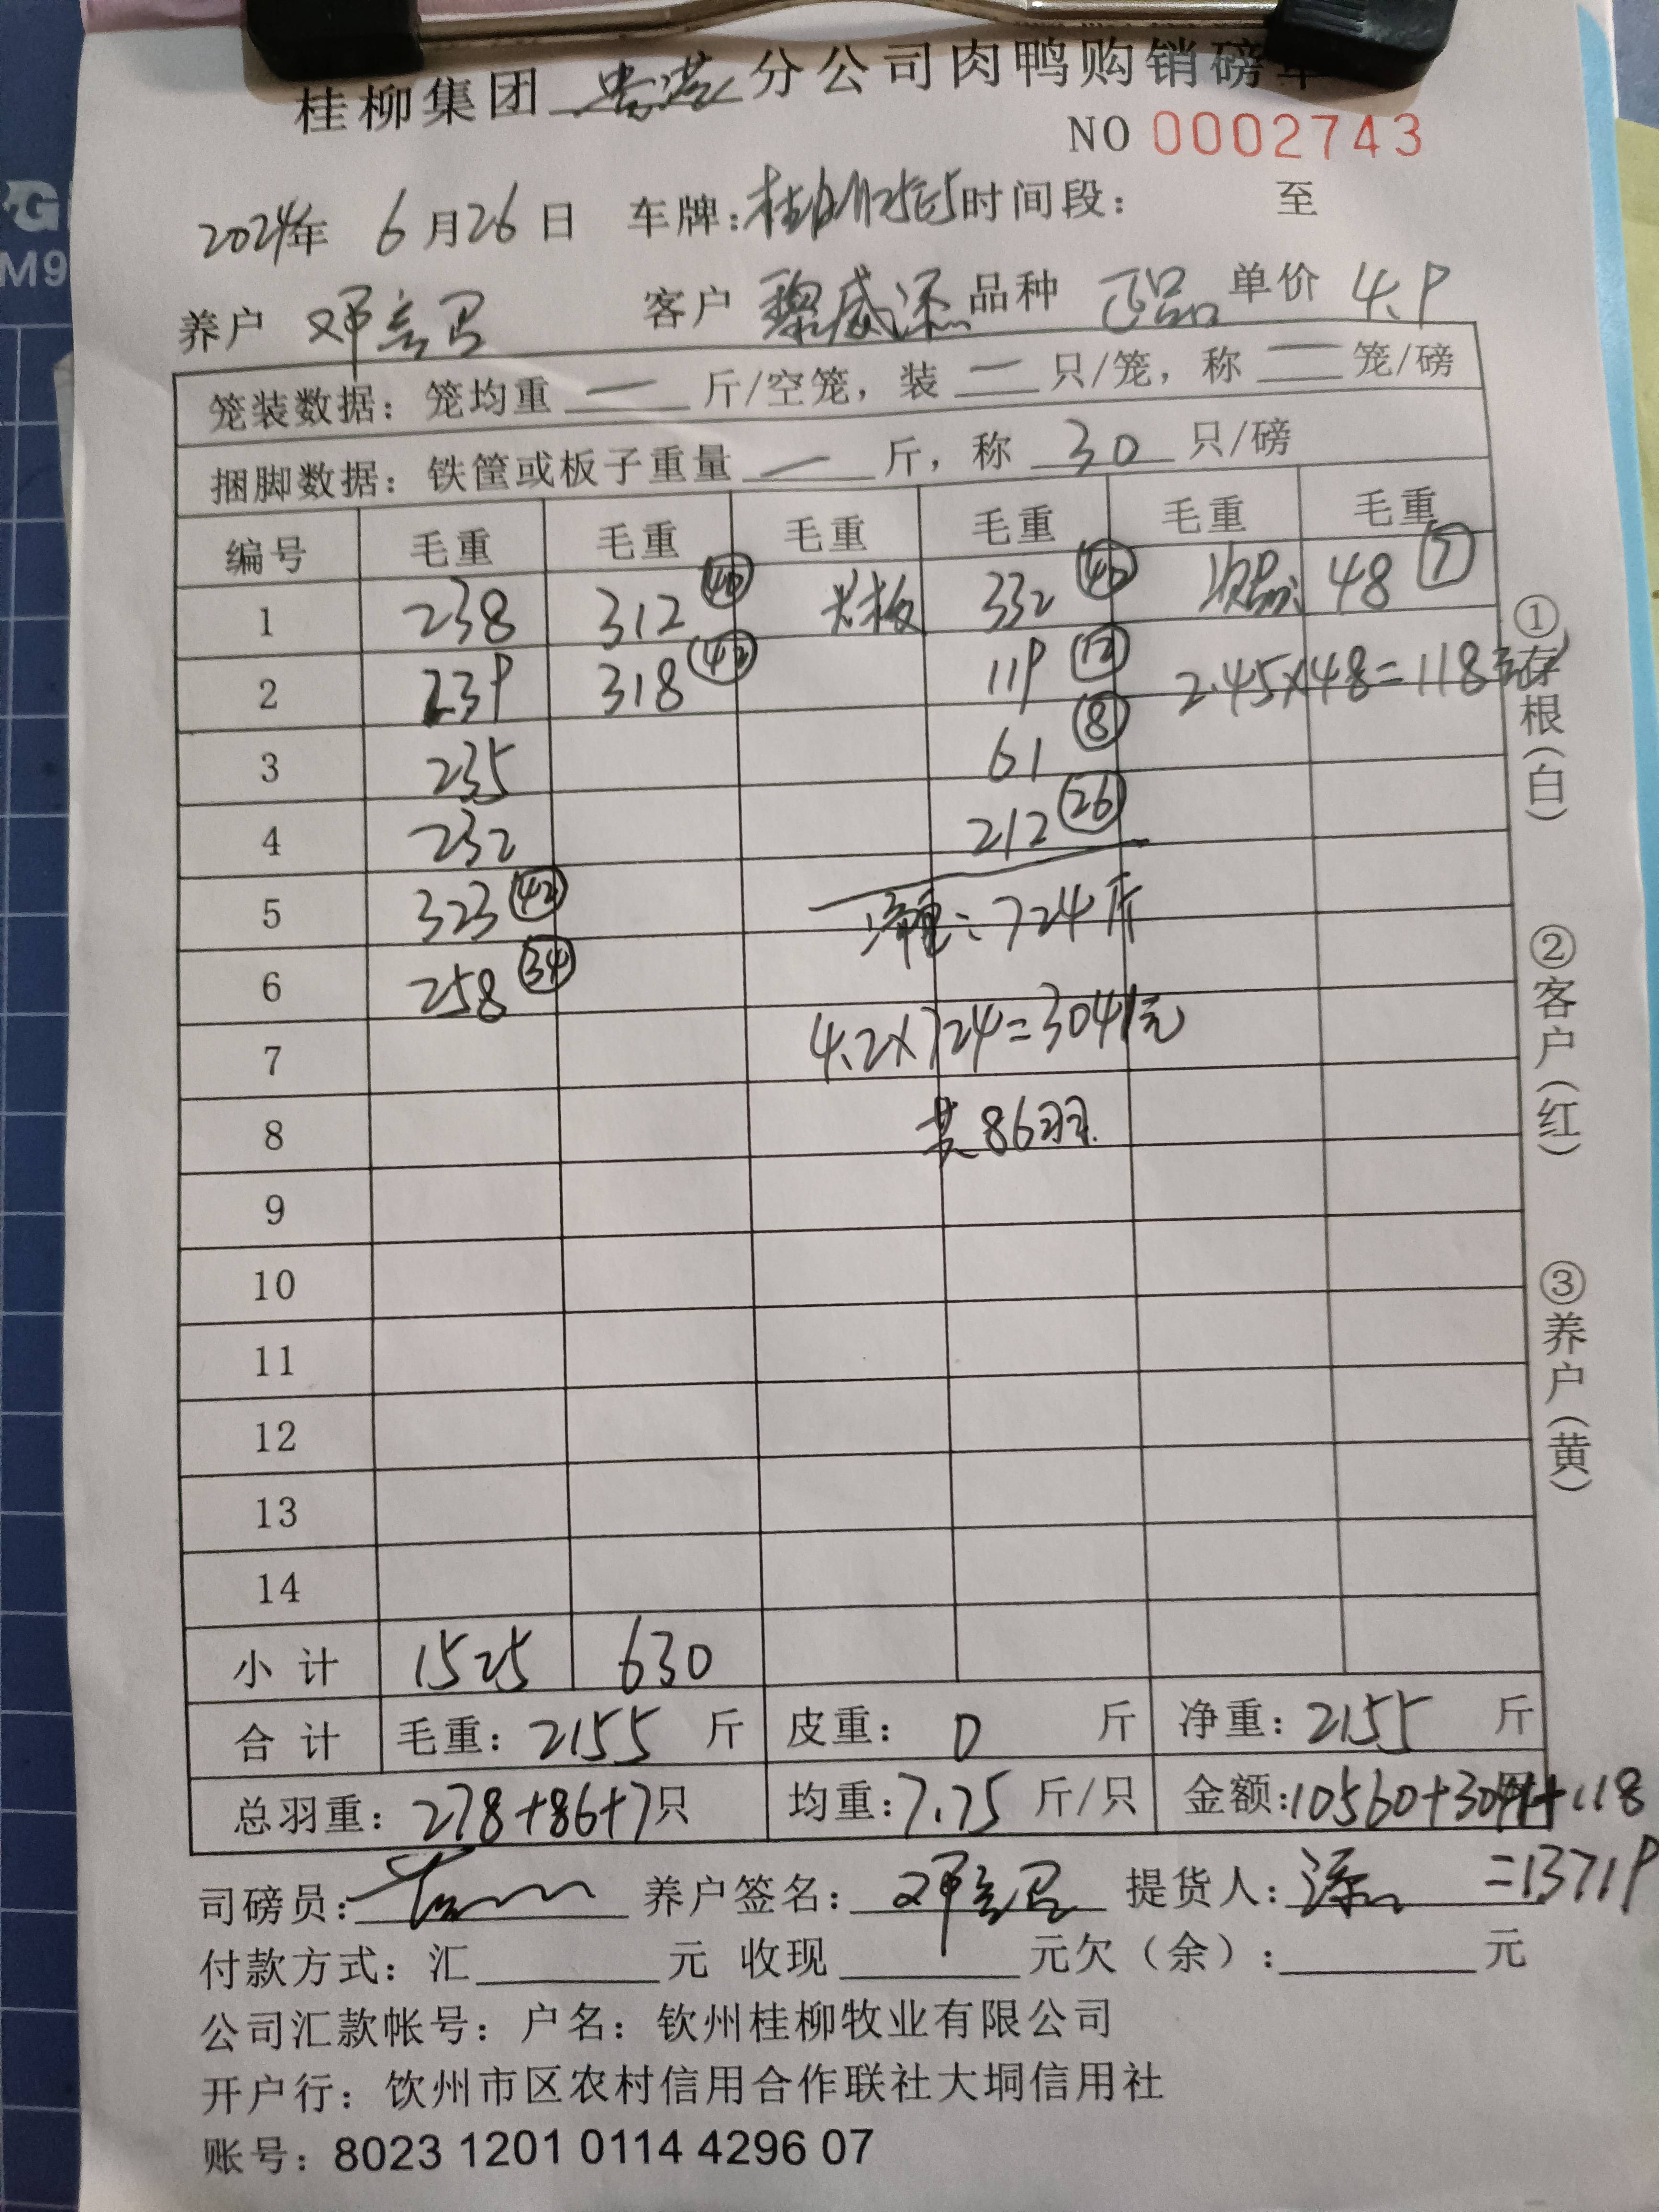 桂柳集团 贵港 分公司肉鸭购销磅单
NO 0002743
2024年 6月26日 车牌: 时间段: 至
养户 邓 客户 黎威添 品种 正品 单价 4.9
笼装数据: 笼均重 — 斤/空笼, 装 — 只/笼, 称 — 笼/磅
捆脚数据: 铁筐或板子重量 — 斤, 称 30 只/磅
编号 毛重 毛重 毛重 毛重 毛重 毛重
1 238 312 (40) 332 (40) 次品: 48 (7)
2 239 318 (42) 119 (12) 2.45×48=118元
3 235 61 (8)
4 232 212 (26)
5 323 (42) 净重: 724斤
6 258 (34)
7 4.2×724=3041元
8 共86羽
9
10
11
12
13
14
小计 1525 630
合计 毛重: 2155 斤 皮重: 0 斤 净重: 2155 斤
总羽重: 278+86+7只 均重: 7.75 斤/只 金额: 10560+3041+118
=13719
司磅员: 养户签名: 邓 提货人: 添
付款方式: 汇 元 收现 元欠(余): 元
公司汇款帐号: 户名: 钦州桂柳牧业有限公司
开户行: 饮州市区农村信用合作联社大垌信用社
账号: 8023 1201 0114 4296 07
①存根(白)
②客户(红)
③养户(黄)
G
M9